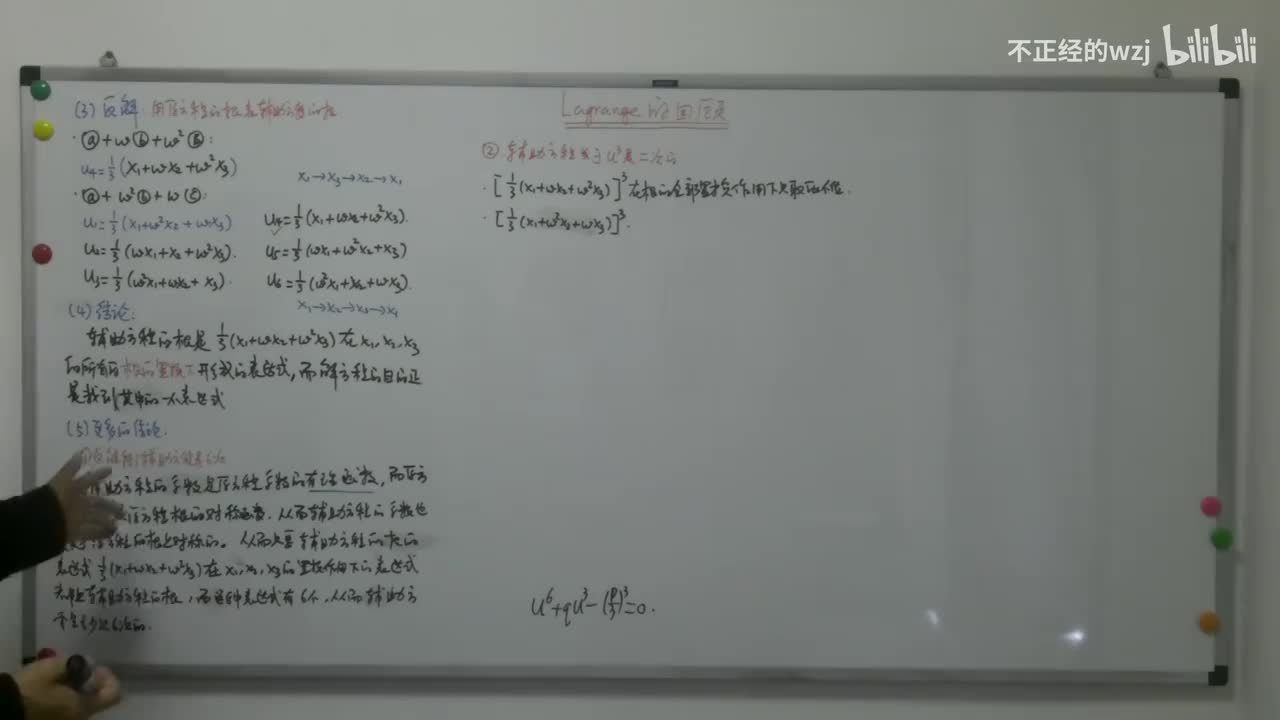 不正经的wzj bilibili
Lagrange的回顾
(3) 反解: 用原方程的根表辅助方程的根
· ⓐ+ωⓑ+ω²ⓒ:
u₄=⅓(x₁+ωx₂+ω²x₃)
x₁→x₃→x₂→x₁
· ⓐ+ω²ⓑ+ωⓒ:
u₁=⅓(x₁+ω²x₂+ωx₃)
u₄=⅓(x₁+ωx₂+ω²x₃).
u₂=⅓(ωx₁+x₂+ω²x₃).
u₅=⅓(ωx₁+ω²x₂+x₃)
u₃=⅓(ω²x₁+ωx₂+x₃).
u₆=⅓(ω²x₁+x₂+ωx₃).
x₁→x₂→x₃→x₁
(4) 结论:
辅助方程的根是⅓(x₁+ωx₂+ω²x₃)在x₁,x₂,x₃
的所有的根的置换下形成的表达式,而解方程的目的正
是找到其中的一个表达式
(5) 更多的结论:
辅助方程的系数是原方程系数的有理函数,而原方
原方程根的对称函数.从而辅助方程的系数也
方程的根对称的。从而只要辅助方程的根的
表达式⅓(x₁+ωx₂+ω²x₃)在x₁,x₂,x₃的置换作用下的表达式
辅助方程的根,而这种表达式有6个,从而辅助方
6次的.
② 辅助方程关于u³是二次的
· [⅓(x₁+ωx₂+ω²x₃)]³在根的全部置换作用下只取两个值.
· [⅓(x₁+ω²x₂+ωx₃)]³.
u⁶+qu³-(p/3)³=0.